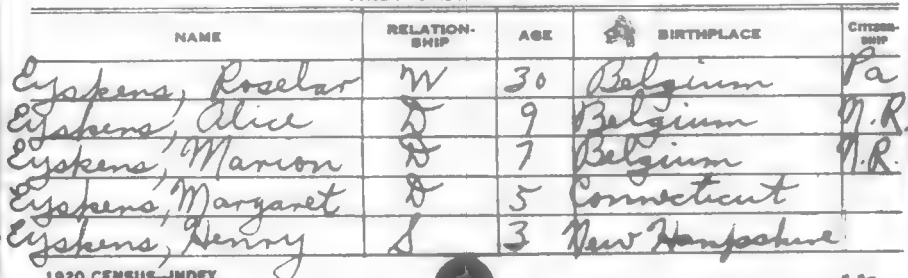 NAME RELATION-SHIP AGE BIRTHPLACE CITIZEN-SHIP
Eyskens, Roselar W 30 Belgium Pa
Eyskens, Alice D 9 Belgium N.R.
Eyskens, Marion D 7 Belgium N.R.
Eyskens, Margaret D 5 Connecticut
Eyskens, Henry S 3 New Hampshire
1920 CENSUS-INDEX